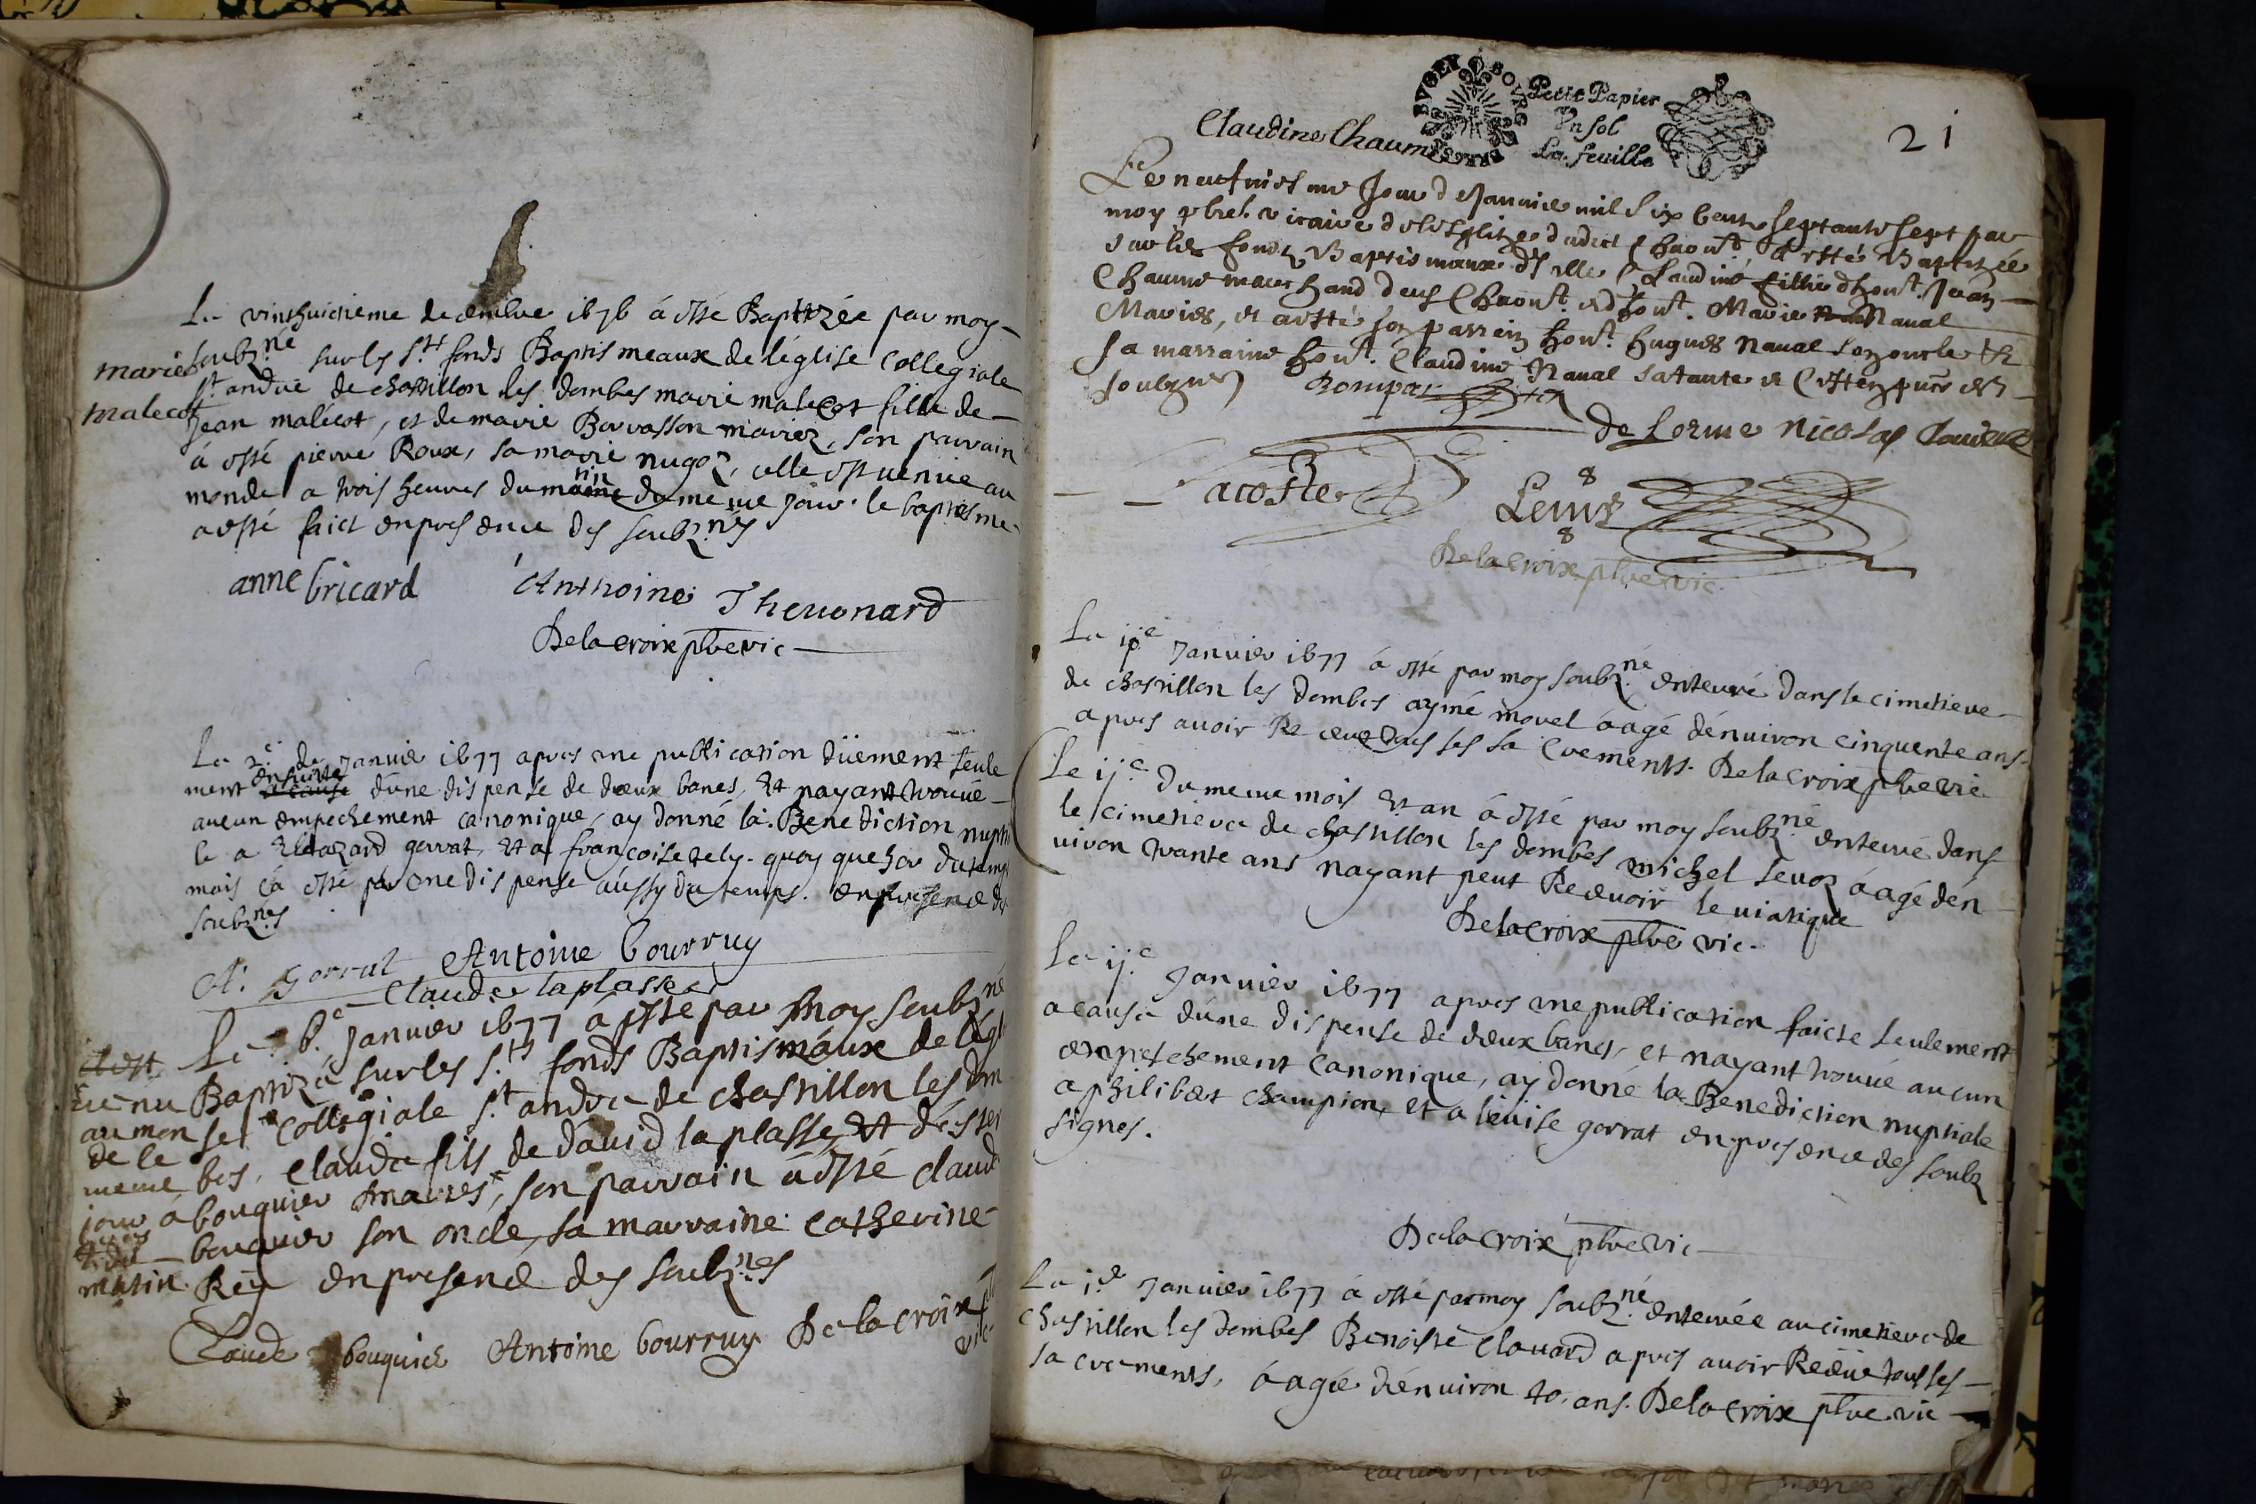 Le vinthuictieme decembre 1676 á ésté Baptizée par moy
soubz.né sur les s.ts fonds Baptismeaux de léglise Collegiale
marie
malecot
s.t andre de chastillon les dombes marie malecot fille de
Jean malecot, et de marie Bovasson mariez, son parrain
á esté pierre Roux, sa marie nugoz, elle est venue au
monde a trois heures du matin du meme jour. le baptesme
a esté faict en presence des soubz.nés
anne bricard Anthoine Thevonard
Delacroix pbre vic
Le 2.e de Janvier 1677 apres une publication düement seule
ment en suitte dúne dispense de deux bancs, Et nayant trouvé
aucun empechement canonique, ay donné la Benediction nuptia
le a Eleazard gorrat, Et a francoise tely. quoy que hor du temps
mais cá esté par une dispense aussy du temps. en presence des
soubz.nes
gorrat Antoine bourruy
Claude laplasse
Le 6.e Janvier 1677 á esté par moy soubz.né
Baptizé sur les s.ts fonds Baptismáux de légl
Collegiale s.t andre de chastillon les dom
bes, Claude fils de david la plasse, Et
bouquier mariés, son parrain á esté claude
bouquier son oncle, sa marraine catherine
Rey en presence des soubz.nes
il est
venu
au mon
de le
meme
jour á
matin
Claude bouquier Antoine bourruy Delacroix
vic
21
BVGEY BOVRG
Petit Papier
Vn sol
La feuille
Claudine Chaume
Le neufuiesme Jour de Januier mil six cent septante sept par
moy pbre vicaire de leglize dudict Chaon.t a esté Baptizée
sur les fonds Baptismaux dicelle Claudine fillie dhon.t Jean
Chaume marchand dud Chaon.t et dhon.t Marie Naual
Mariés, et a esté son parrein hon.t hugues Naual son oncle et
sa marraine hon.t Claudine Naual sa tante
soubznes Rompar
de Lorme Nicolas
Lacoste
Delacroix pbre vic.
Janvier 1677 á esté par moy soubz.né enterré dans le cimetiere
de chastillon les dombes aymé morel áagé dénviron cinquente ans.
apres avoir Receu tous ses sacrements. Delacroix pbre vic
Le 11.e du meme mois Et an á ésté par moy soubz.né enterré dans
le cimetiere de chastillon les dombes michel áagé dén
viron trante ans nayant peut Recevoir le viatique
Delacroix pbre vic.
Le 11.e Janvier 1677 apres une publication faicte seulement
a cause dúne dispense de deux bancs, et nayant trouvé aucun
empeschement canonique, ay donné la Benediction nuptiale
a philibert champion, et a lovise gorrat en presence des soubz
signes.
Delacroix pbre vic
Janvier 1677 á esté par moy soubz.né enterrée au cimetiere de
chastillon les dombes Benoiste Clouard apres avoir Receüe tous ses
sacrements, áagée dénviron 40. ans. Delacroix pbre vic